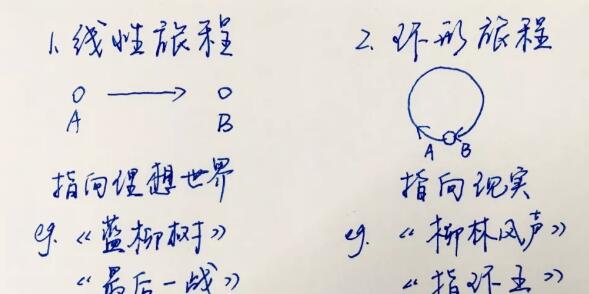 1. 线性旅程
A
B
指向理想世界
eg. 《蓝柳树》
《最后一战》
2. 环形旅程
A B
指向现实
eg. 《柳林风声》
《指环王》